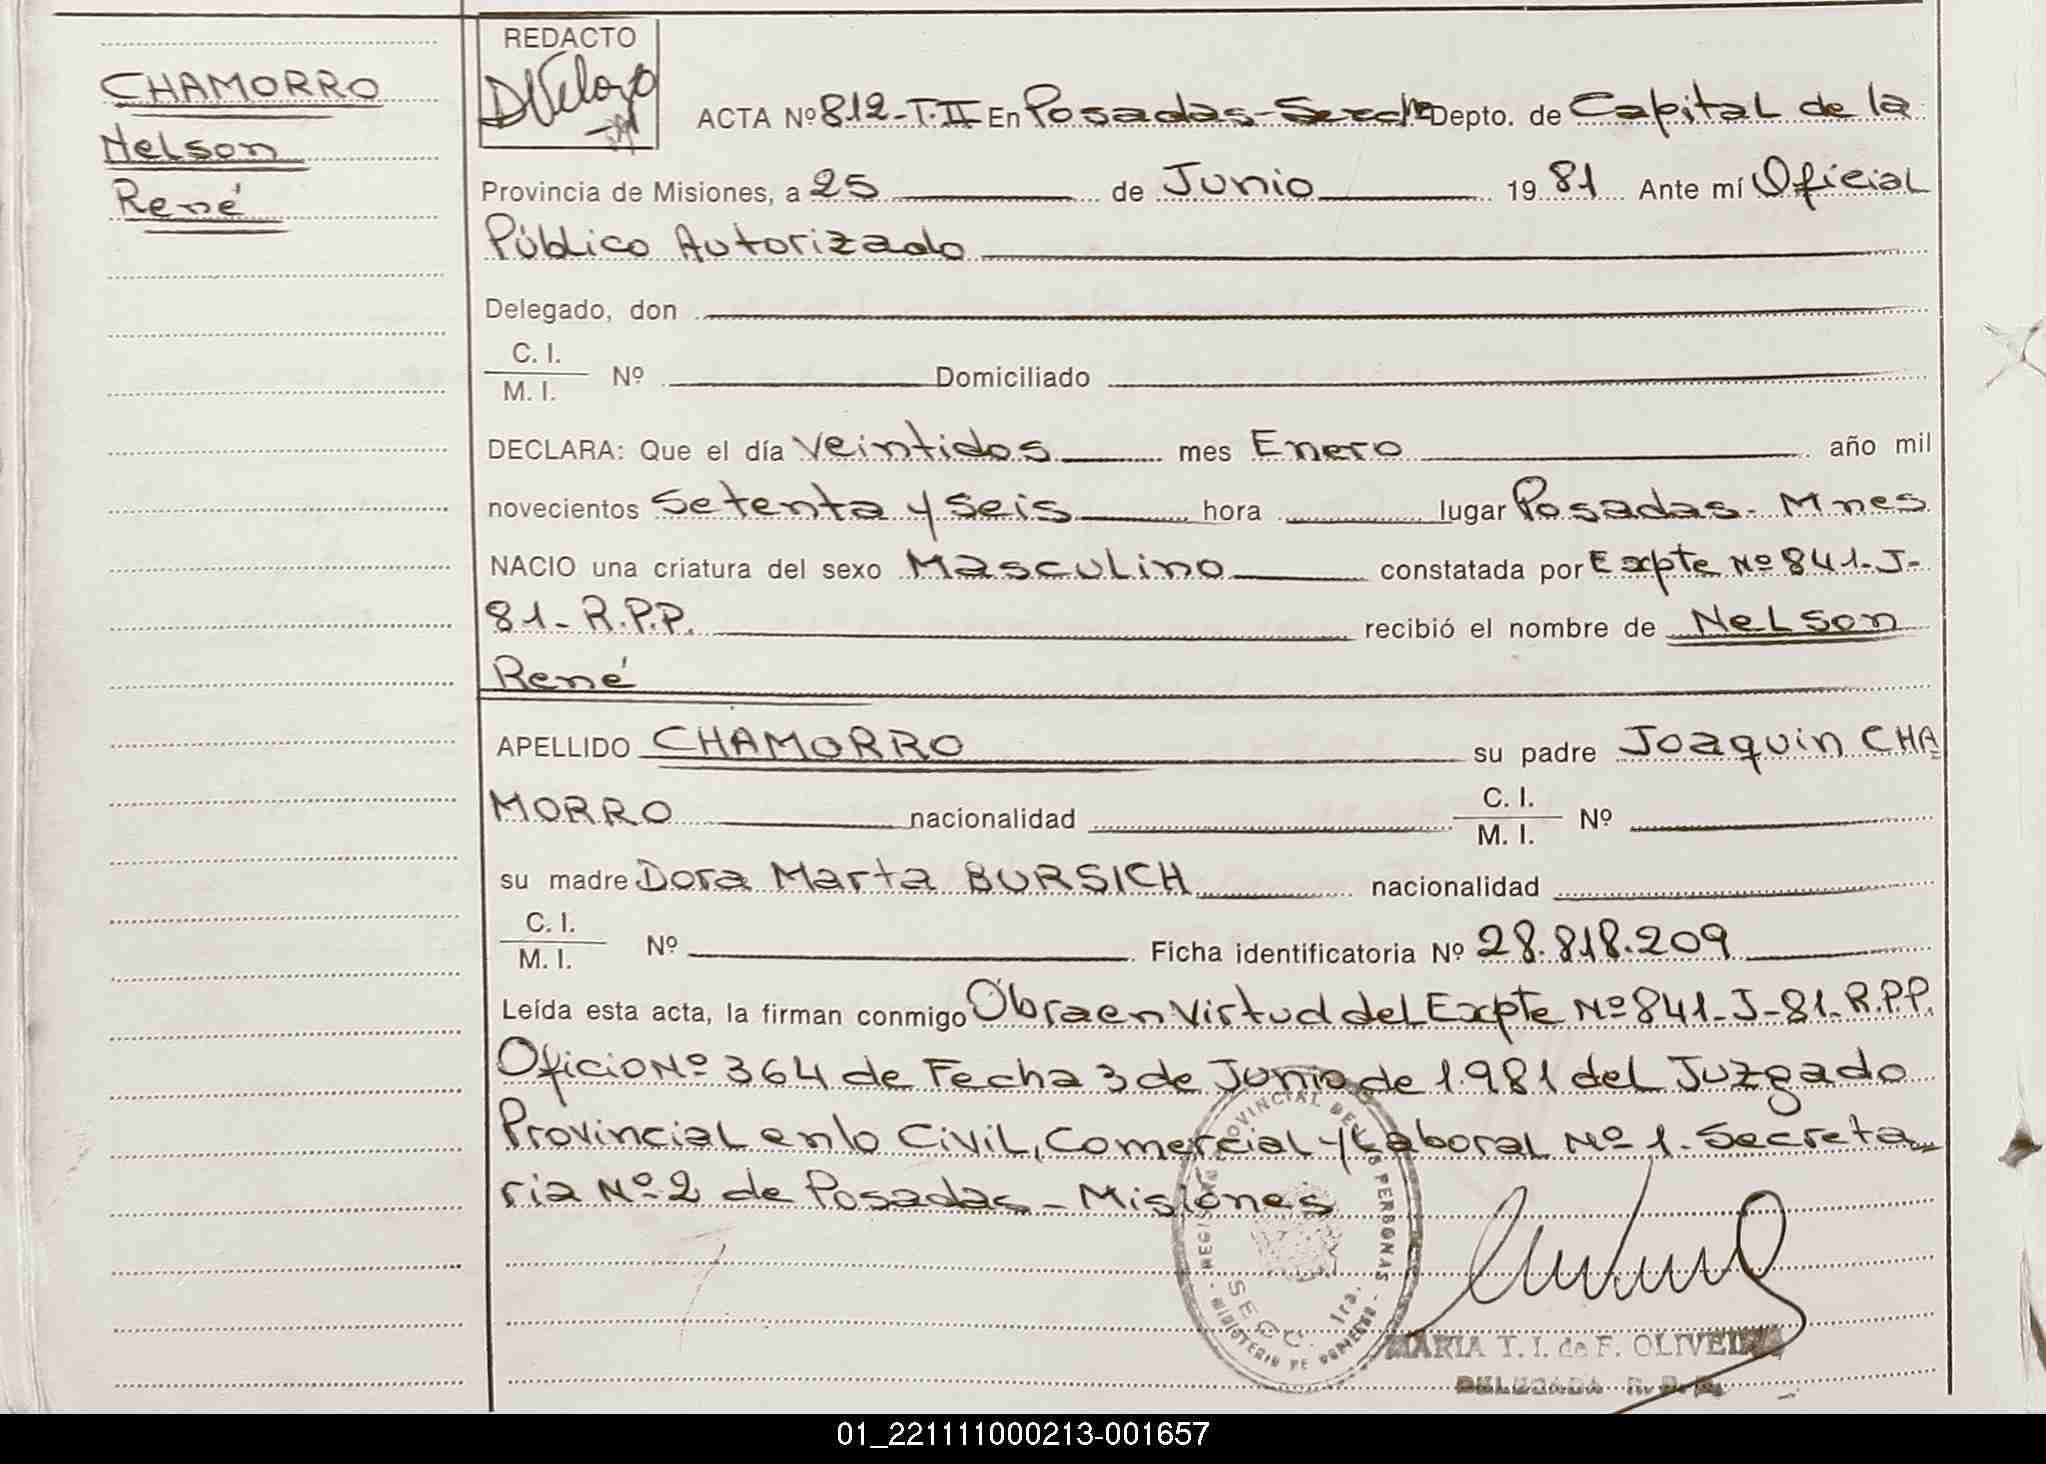 CHAMORRO
Nelson
René
REDACTO
ACTA Nº 812-T.II En Posadas- Depto. de Capital de la
Provincia de Misiones, a 25 de Junio 19 81 Ante mí Oficial
Público Autorizado
Delegado, don
C. I.
M. I. Nº Domiciliado
DECLARA: Que el día Veintidos mes Enero año mil
novecientos Setenta y Seis hora lugar Posadas- Mnes
NACIO una criatura del sexo Masculino constatada por Expte Nº 841-J-
81- R.P.P. recibió el nombre de Nelson
René
APELLIDO CHAMORRO su padre Joaquin CHA
MORRO nacionalidad C. I.
M. I. Nº
su madre Dora Marta BURSICH nacionalidad
C. I.
M. I. Nº Ficha identificatoria Nº 28.818.209
Leída esta acta, la firman conmigo Obra en Virtud del Expte Nº 841-J-81-R.P.P.
Oficio Nº 364 de Fecha 3 de Junio de 1.981 del Juzgado
Provincial en lo Civil, Comercial y Laboral Nº 1. Secreta
ria Nº 2 de Posadas - Misiones
REGISTRO PROVINCIAL DE LAS PERSONAS
MINISTERIO DE GOBIERNO
SECC. 1ra.
MARIA T. I. de F. OLIVEIRA
DELEGADA R. P. P.
01_221111000213-001657